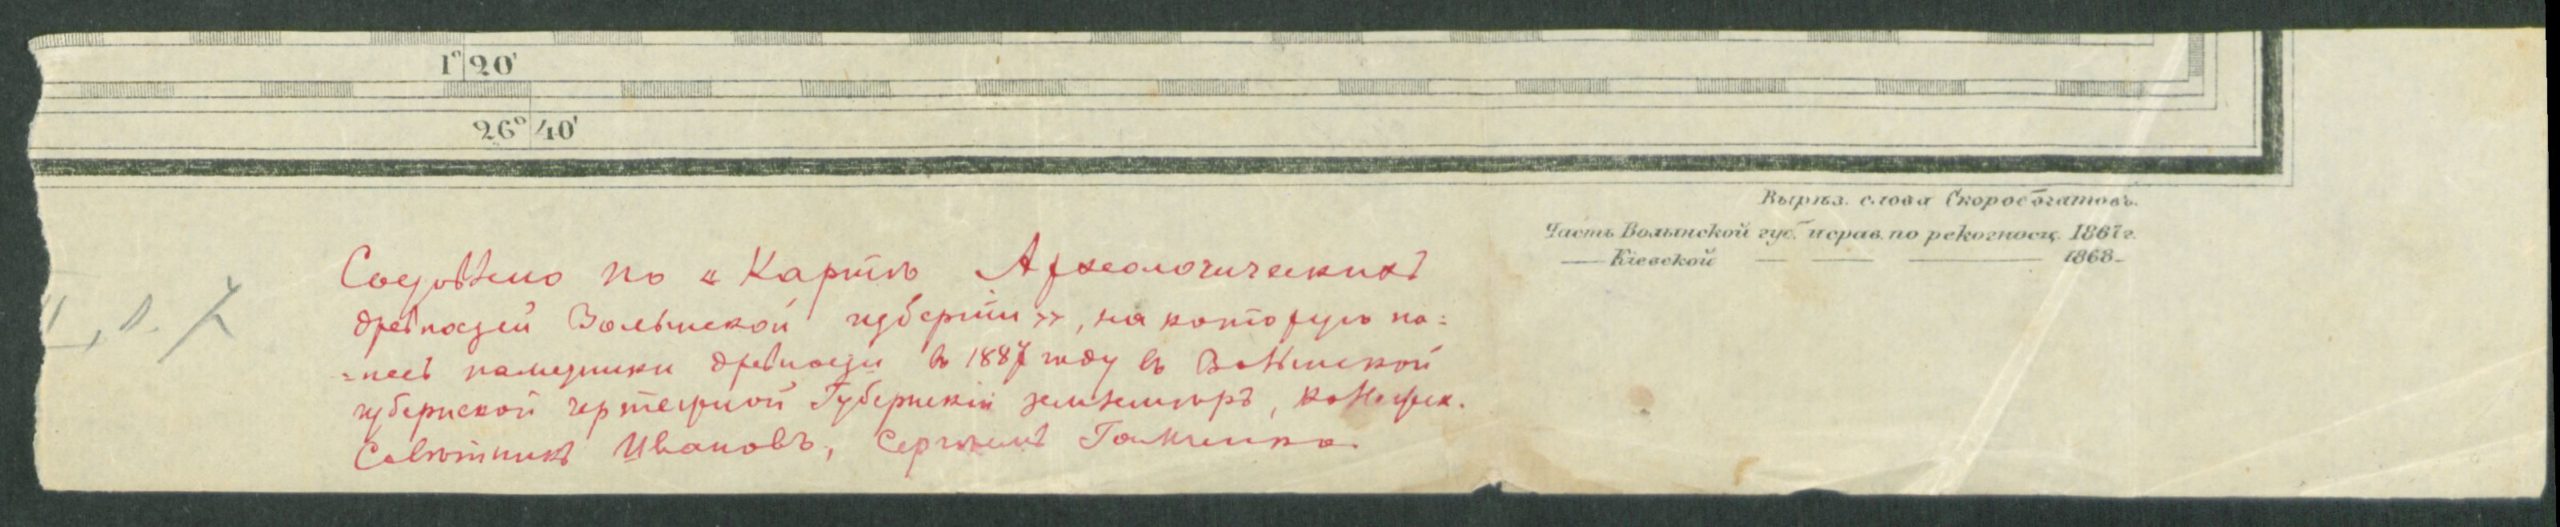 1° 20'
26° 40'
Вырѣз. слова Скоробогатовъ.
Часть Волынской губ. исрав. по рекогносц. 1867 г.
— Кіевской — — — 1868 —
по « Картѣ Археологическихъ
древностей Волынской губерніи », на которую на=
=несъ памятники древности въ 1887 году въ Волынской
губернской чертежной Губернскій землемѣръ, Коллежск.
Совѣтникъ Ивановъ, Сергѣемъ Гамченко.